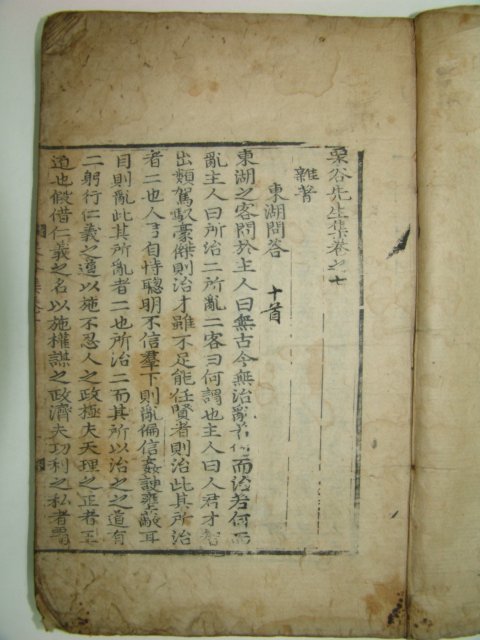 栗谷先生集卷之七
雜著
東湖問答 十首
東湖之客問於主人曰無古今無治亂若何而治若何而
亂主人曰所治二所亂二客曰何謂也主人曰人君才智
出類駕馭豪傑則治才雖不足能任賢者則治此其所治
者二也人君自恃聰明不信羣下則亂偏信姦諛壅蔽耳
目則亂此其所亂者二也所治二而其所以治之之道有
二躬行仁義之道以施不忍人之政極夫天理之正者王
道也假借仁義之名以施權謀之政濟夫功利之私者霸